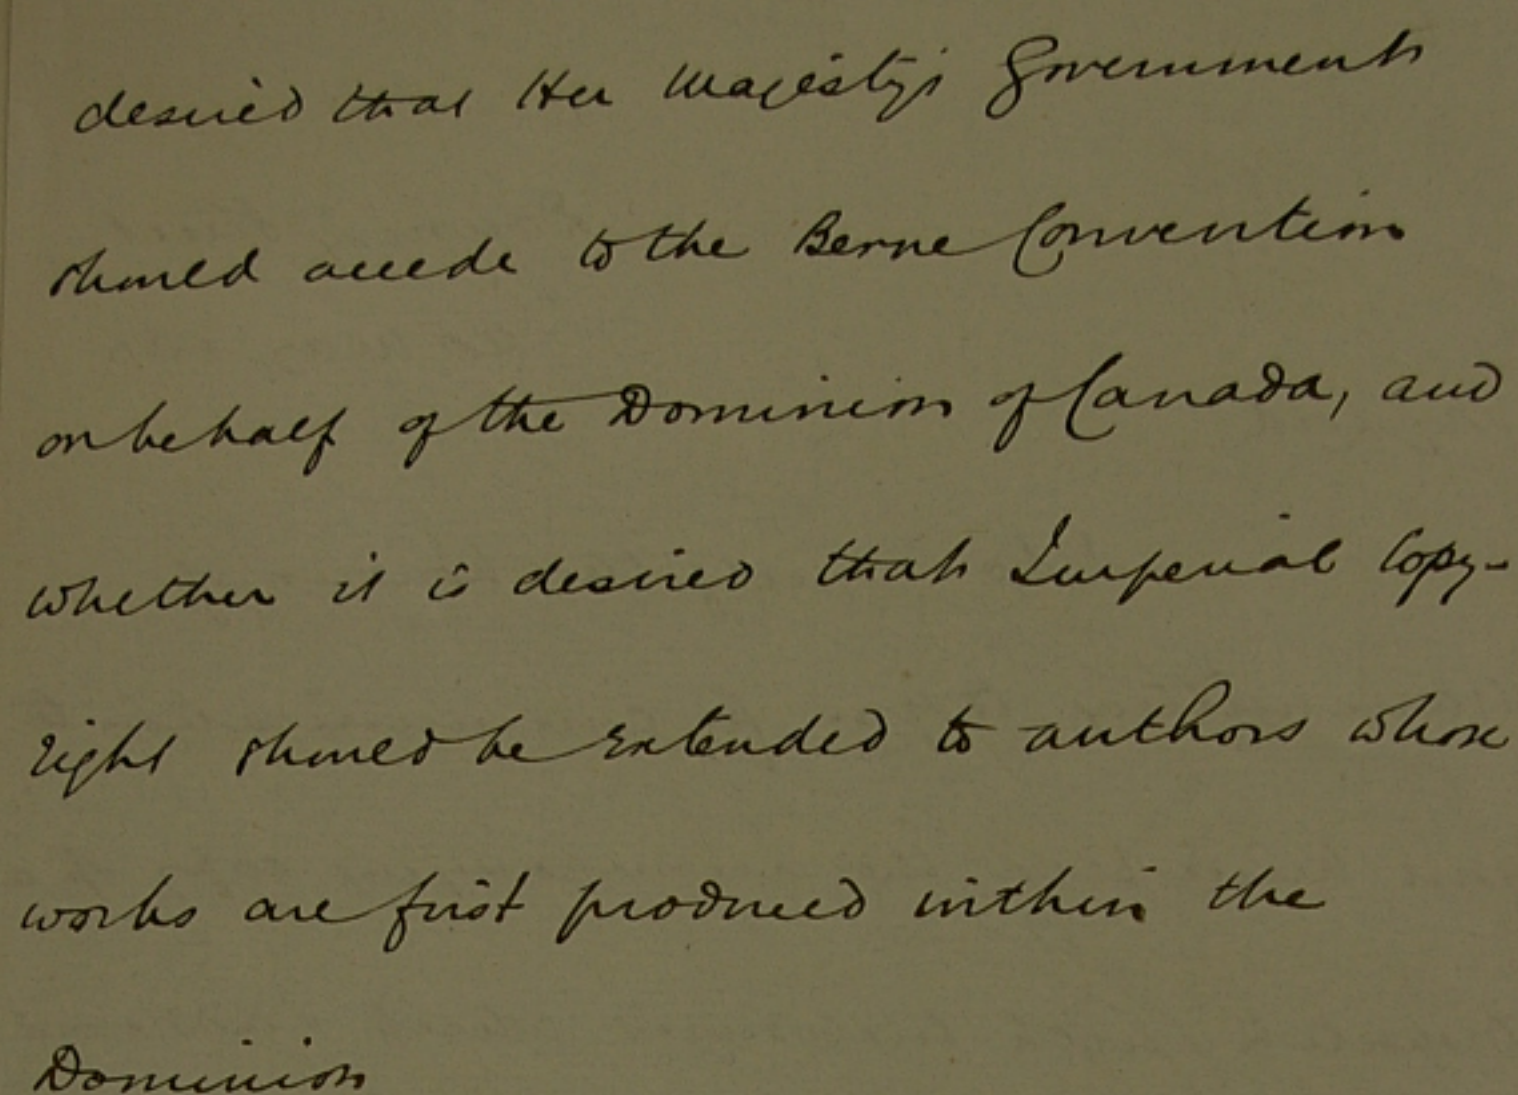 desired that Her Majesty's Government
should accede to the Berne Convention
on behalf of the Dominion of Canada, and
whether it is desired that Imperial Copy-
right should be extended to authors whose
works are first produced within the
Dominion